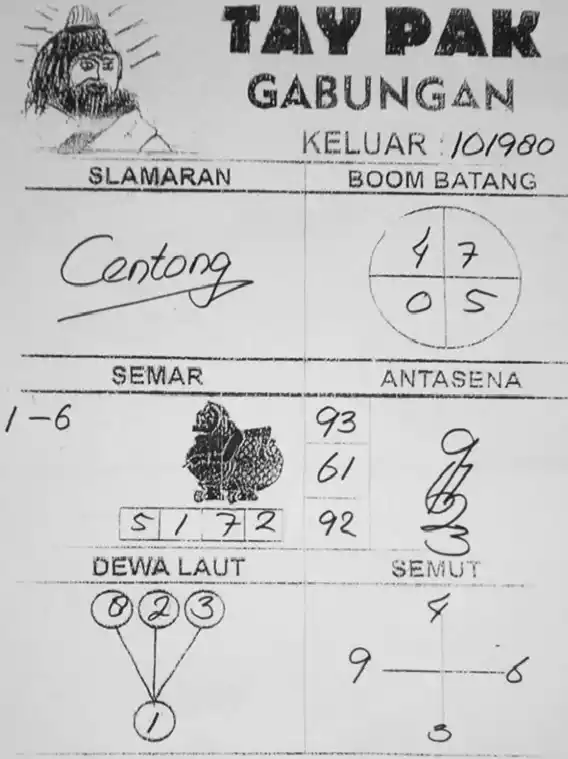 TAY PAK
GABUNGAN
KELUAR : 101980
SLAMARAN
BOOM BATANG
Centong
4 7
0 5
SEMAR
ANTASENA
1-6
5 1 7 2
93
61
92
9
3
DEWA LAUT
SEMUT
8 2 3
1
4
9 6
3